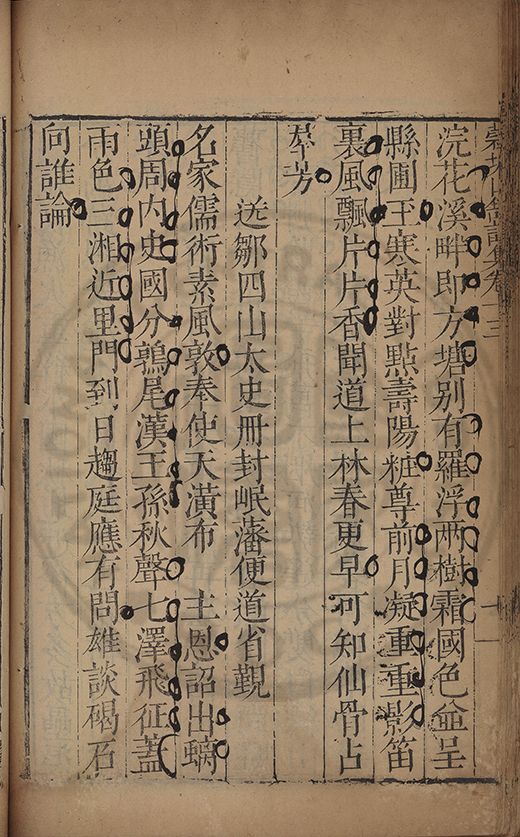 浣花溪畔即方塘別有羅浮兩樹霜國色並呈
縣圃玉寒英對點壽陽粧尊前月凝重重影笛
裏風飄片片香聞道上林春更早可知仙骨占
羣芳
送鄒四山太史冊封岷藩便道省覲
名家儒術素風敦奉使天潢布 主恩詔出螭
頭周內史國分鶉尾漢王孫秋聲七澤飛征蓋
雨色三湘近里門到日趨庭應有問雄談碣石
向誰論